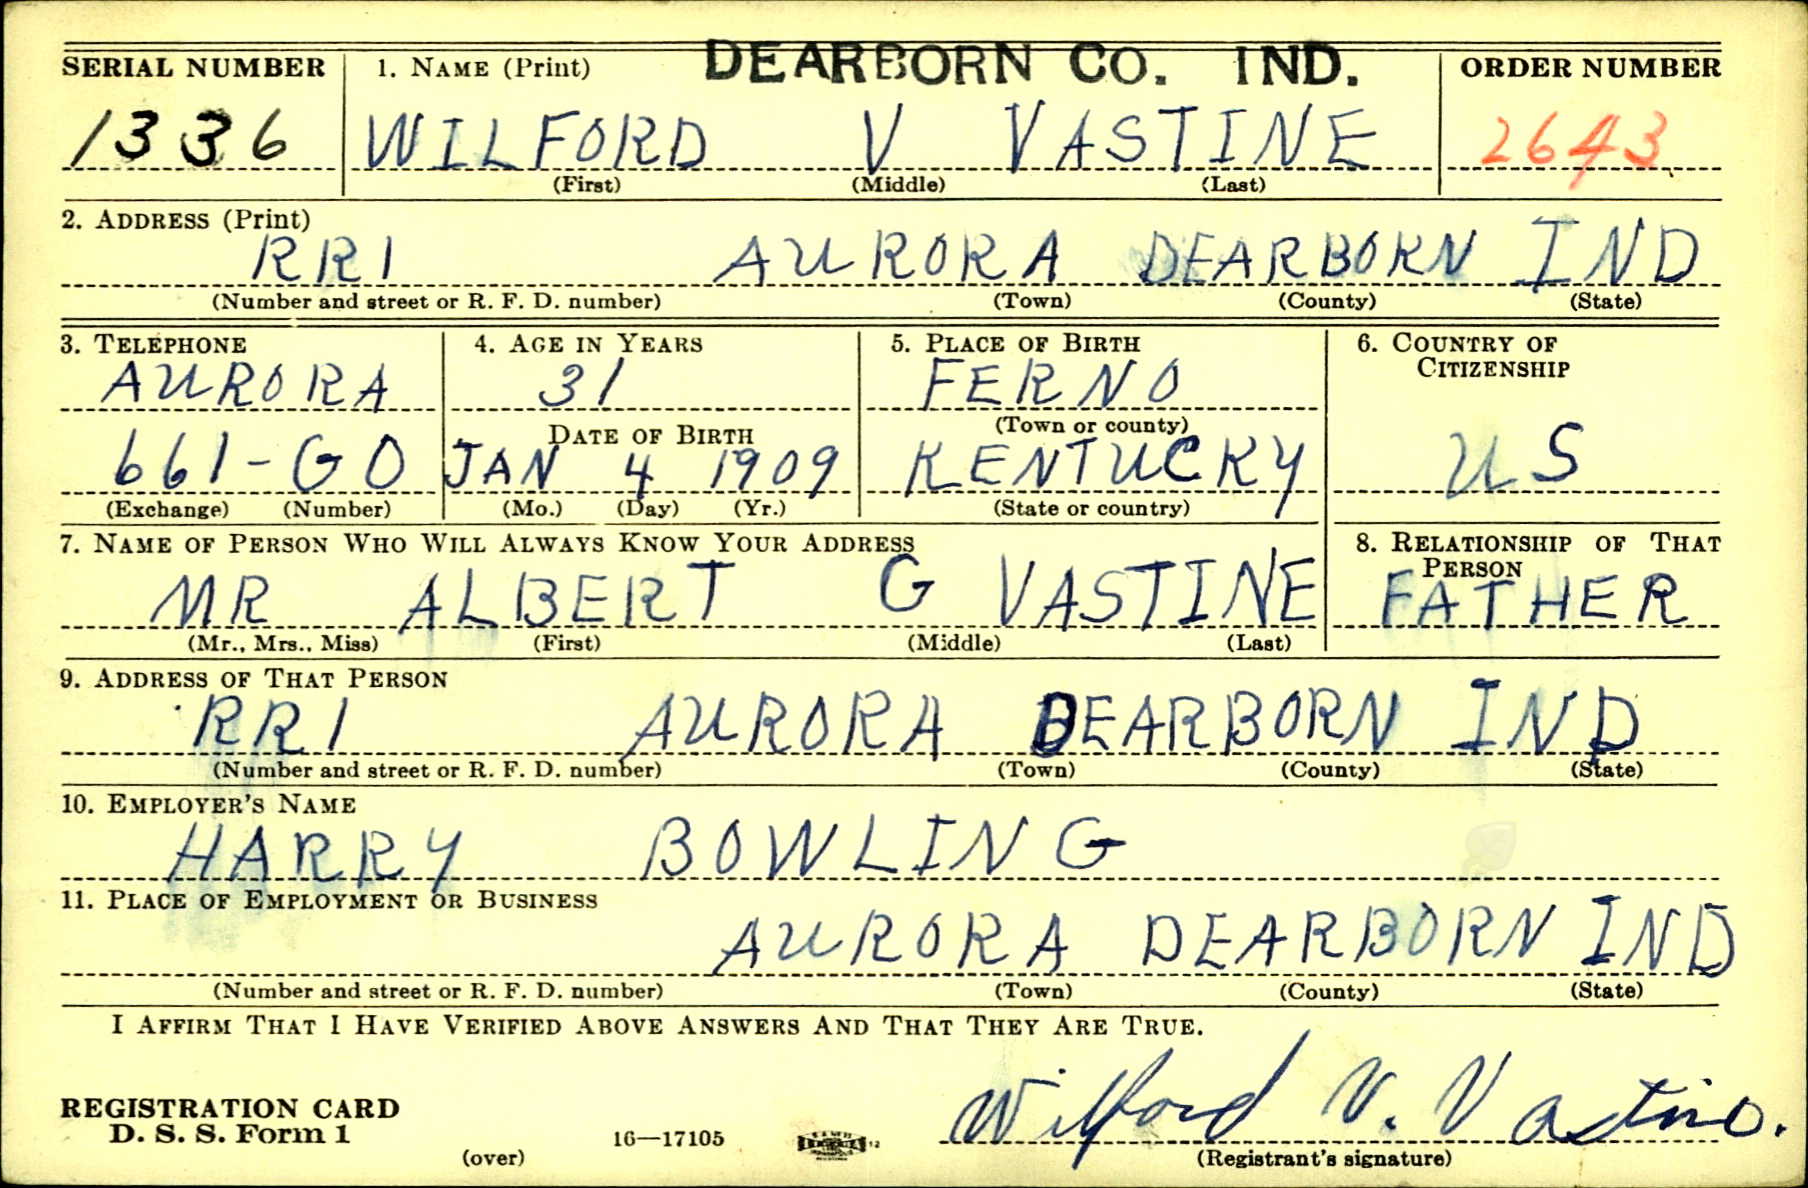 DEARBORN CO. IND.
SERIAL NUMBER 1. NAME (Print) ORDER NUMBER
1336 WILFORD V VASTINE 2643
(First) (Middle) (Last)
2. ADDRESS (Print)
RR1 AURORA DEARBORN IND
(Number and street or R. F. D. number) (Town) (County) (State)
3. TELEPHONE 4. AGE IN YEARS 5. PLACE OF BIRTH 6. COUNTRY OF CITIZENSHIP
AURORA 31 FERNO
DATE OF BIRTH (Town or county)
661-GO JAN 4 1909 KENTUCKY US
(Exchange) (Number) (Mo.) (Day) (Yr.) (State or country)
7. NAME OF PERSON WHO WILL ALWAYS KNOW YOUR ADDRESS 8. RELATIONSHIP OF THAT PERSON
MR ALBERT G VASTINE FATHER
(Mr., Mrs., Miss) (First) (Middle) (Last)
9. ADDRESS OF THAT PERSON
RR1 AURORA DEARBORN IND
(Number and street or R. F. D. number) (Town) (County) (State)
10. EMPLOYER'S NAME
HARRY BOWLING
11. PLACE OF EMPLOYMENT OR BUSINESS
AURORA DEARBORN IND
(Number and street or R. F. D. number) (Town) (County) (State)
I AFFIRM THAT I HAVE VERIFIED ABOVE ANSWERS AND THAT THEY ARE TRUE.
REGISTRATION CARD
D. S. S. Form 1 16—17105 Wilford V. Vastine.
(over) (Registrant's signature)